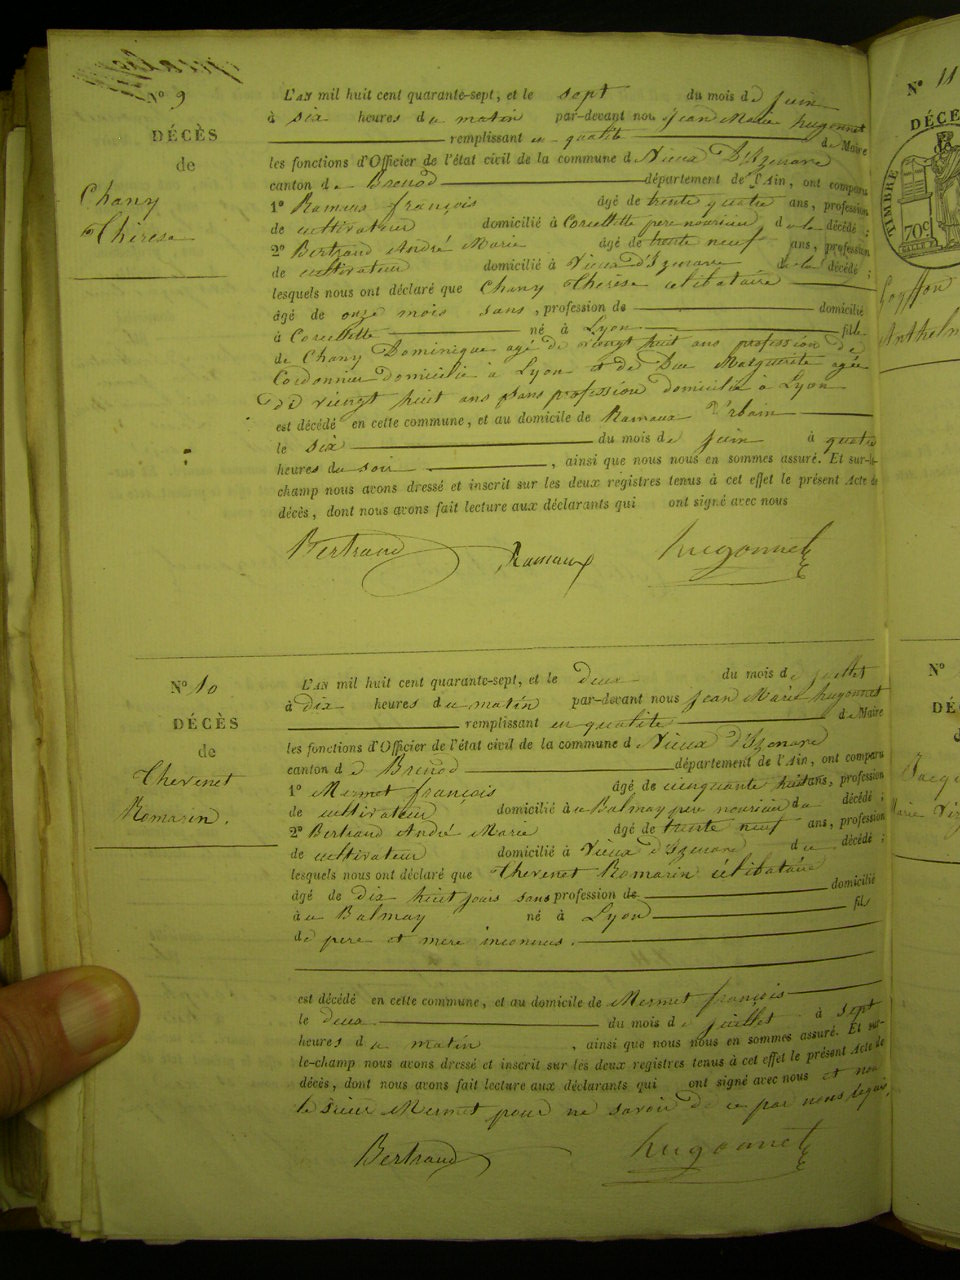 N° 9
DÉCÈS
de
Chany
Thérèse
L'AN mil huit cent quarante-sept, et le sept du mois de juin
à six heures du matin par-devant nous Jean Marie hugonnet
remplissant en qualité de Maire
les fonctions d'Officier de l'état civil de la commune d Vieux D'Izenave
canton de Brenod département de l'Ain, ont comparu
1° Ramaux françois âgé de trente quatre ans, profession
de cultivateur domicilié à Corcellette pere nouricier de la décédé ;
2° Bertrand André Marie âgé de trente neuf ans, profession
de cultivateur domicilié à Vieux d'Izenave de la décédé ;
lesquels nous ont déclaré que Chany Thérèse célibataire
âgé de onze mois sans, profession de domicilié
à Corcellette né à Lyon fille
de Chany Dominique agé de viengt huit ans profession de
Cordonnier domicilié à Lyon et de Duc Marguerite agée
de viengt huit ans sans profession domicilié à Lyon
est décédé en cette commune, et au domicile de Ramaux Urbain
le six du mois de juin à quatre
heures du soir , ainsi que nous nous en sommes assuré. Et sur-le-
champ nous avons dressé et inscrit sur les deux régistres tenus à cet effet le présent Acte de
décès, dont nous avons fait lecture aux déclarants qui ont signé avec nous
Bertrand Ramaux hugonnet
N° 10
DÉCÈS
de
Thevenet
Romarin.
L'AN mil huit cent quarante-sept, et le deux du mois de juillet
à dix heures du matin par-devant nous Jean Marie hugonnet
remplissant en qualité de Maire
les fonctions d'Officier de l'état civil de la commune d Vieux d'Izenave
canton d Brenod département de l'Ain, ont comparu
1° Mermet françois âgé de cienquante huit ans, profession
de cultivateur domicilié à u Balmay pere nouricier du décédé ;
2° Bertrand André Marie âgé de trente neuf ans, profession
de cultivateur domicilié à Vieux d'Izenave du décédé ;
lesquels nous ont déclaré que Thevenet Romarin célibataire
âgé de dix huit jours sans profession de domicilié
à u Balmay né à Lyon fil
de pere et mere inconnus.
est décédé en cette commune, et au domicile de Mermet françois
le deux du mois de juillet à sept
heures du matin , ainsi que nous nous en sommes assuré. Et sur-
le-champ nous avons dressé et inscrit sur les deux registres tenus à cet effet le présent Acte de
décès, dont nous avons fait lecture aux déclarants qui ont signé avec nous et non
le sieur Mermet pour ne savoir de ce par nous requis
Bertrand hugonnet
N° 11
DÉCÈ
TIMBRE
70c.
Goyffon
Anthelm
N°
DÉ
d
Jacqu
Marie